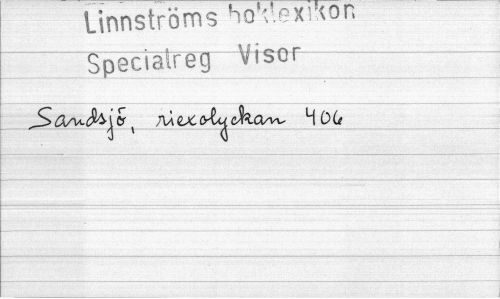 Linnströms boklexikon
Specialreg Visor
Sandsjö, riexolyckan 406